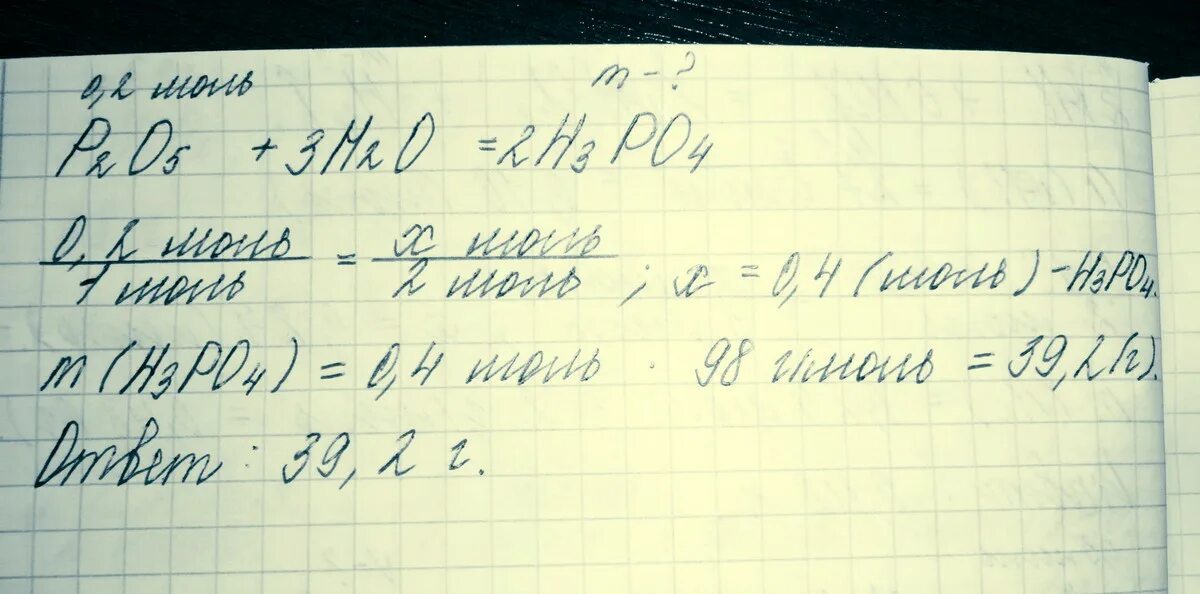 0,2 моль m - ?
P2O5 + 3H2O = 2H3PO4
0,2 моль / 1 моль = x моль / 2 моль ; x = 0,4 (моль) - H3PO4.
m (H3PO4) = 0,4 моль · 98 г/моль = 39,2 (г).
Ответ : 39,2 г.